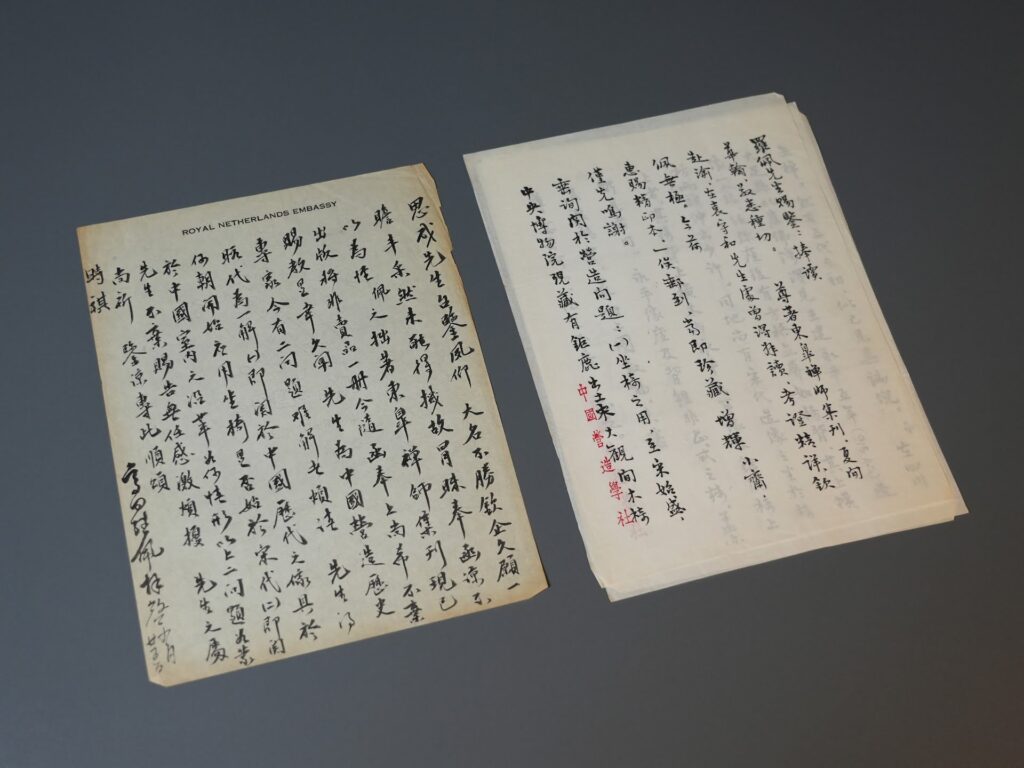 ROYAL NETHERLANDS EMBASSY
思成先生台鑒夙仰 大名不勝欽企久願一
瞻丰采然未能得機故冒昧奉函諒不
以為怪佩之拙著東皋禪師集刊現已
出版將非賣品一冊今隨函奉上尚希不棄
賜教是幸久聞 先生為中國營造歷史
專家今有二問題難解尤煩請 先生得
暇代為一解(一)即關於中國歷代之傢具於
何朝開始應用坐椅是否始於宋代(二)即關
於中國室內之沿革如何情形以上二問題如蒙
先生不棄賜告無任感激煩擾 先生之處
尚祈 鑒諒專此順頌
時祺
高羅佩拜啓
羅佩先生賜鑒:捧讀
華翰,敬悉種切。 尊著東皋禪師集刊,夏間
赴渝,在袁守和先生處曾得拜讀,考證核詳,欽
佩無極。今荷
惠賜精印本,一俟郵到,當即珍藏,增輝小齋,
謹先鳴謝。
垂詢關於營造問題:(一)坐椅之用,至宋始盛,
中央博物院現藏有鉅鹿出土宋大觀間木椅
中國營造學社